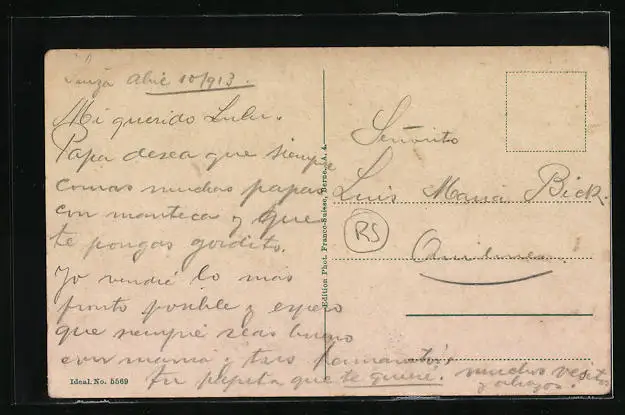 Abril 10/913.
Mi querido Lulu.
Papa desea que siempre
comas muchas papas
con manteca y que
te pongas gordito.
Yo vendré lo mas
pronto posible y espero
que siempre seas bueno
con mamá y tus
Tu papito que te quiere. muchos besitos
y abrazos.
Señorito
Luis Maria Bick.
Quilmes.
RS
Edition Phot. Franco-Suisse, Berne.
Ideal. No. 5569